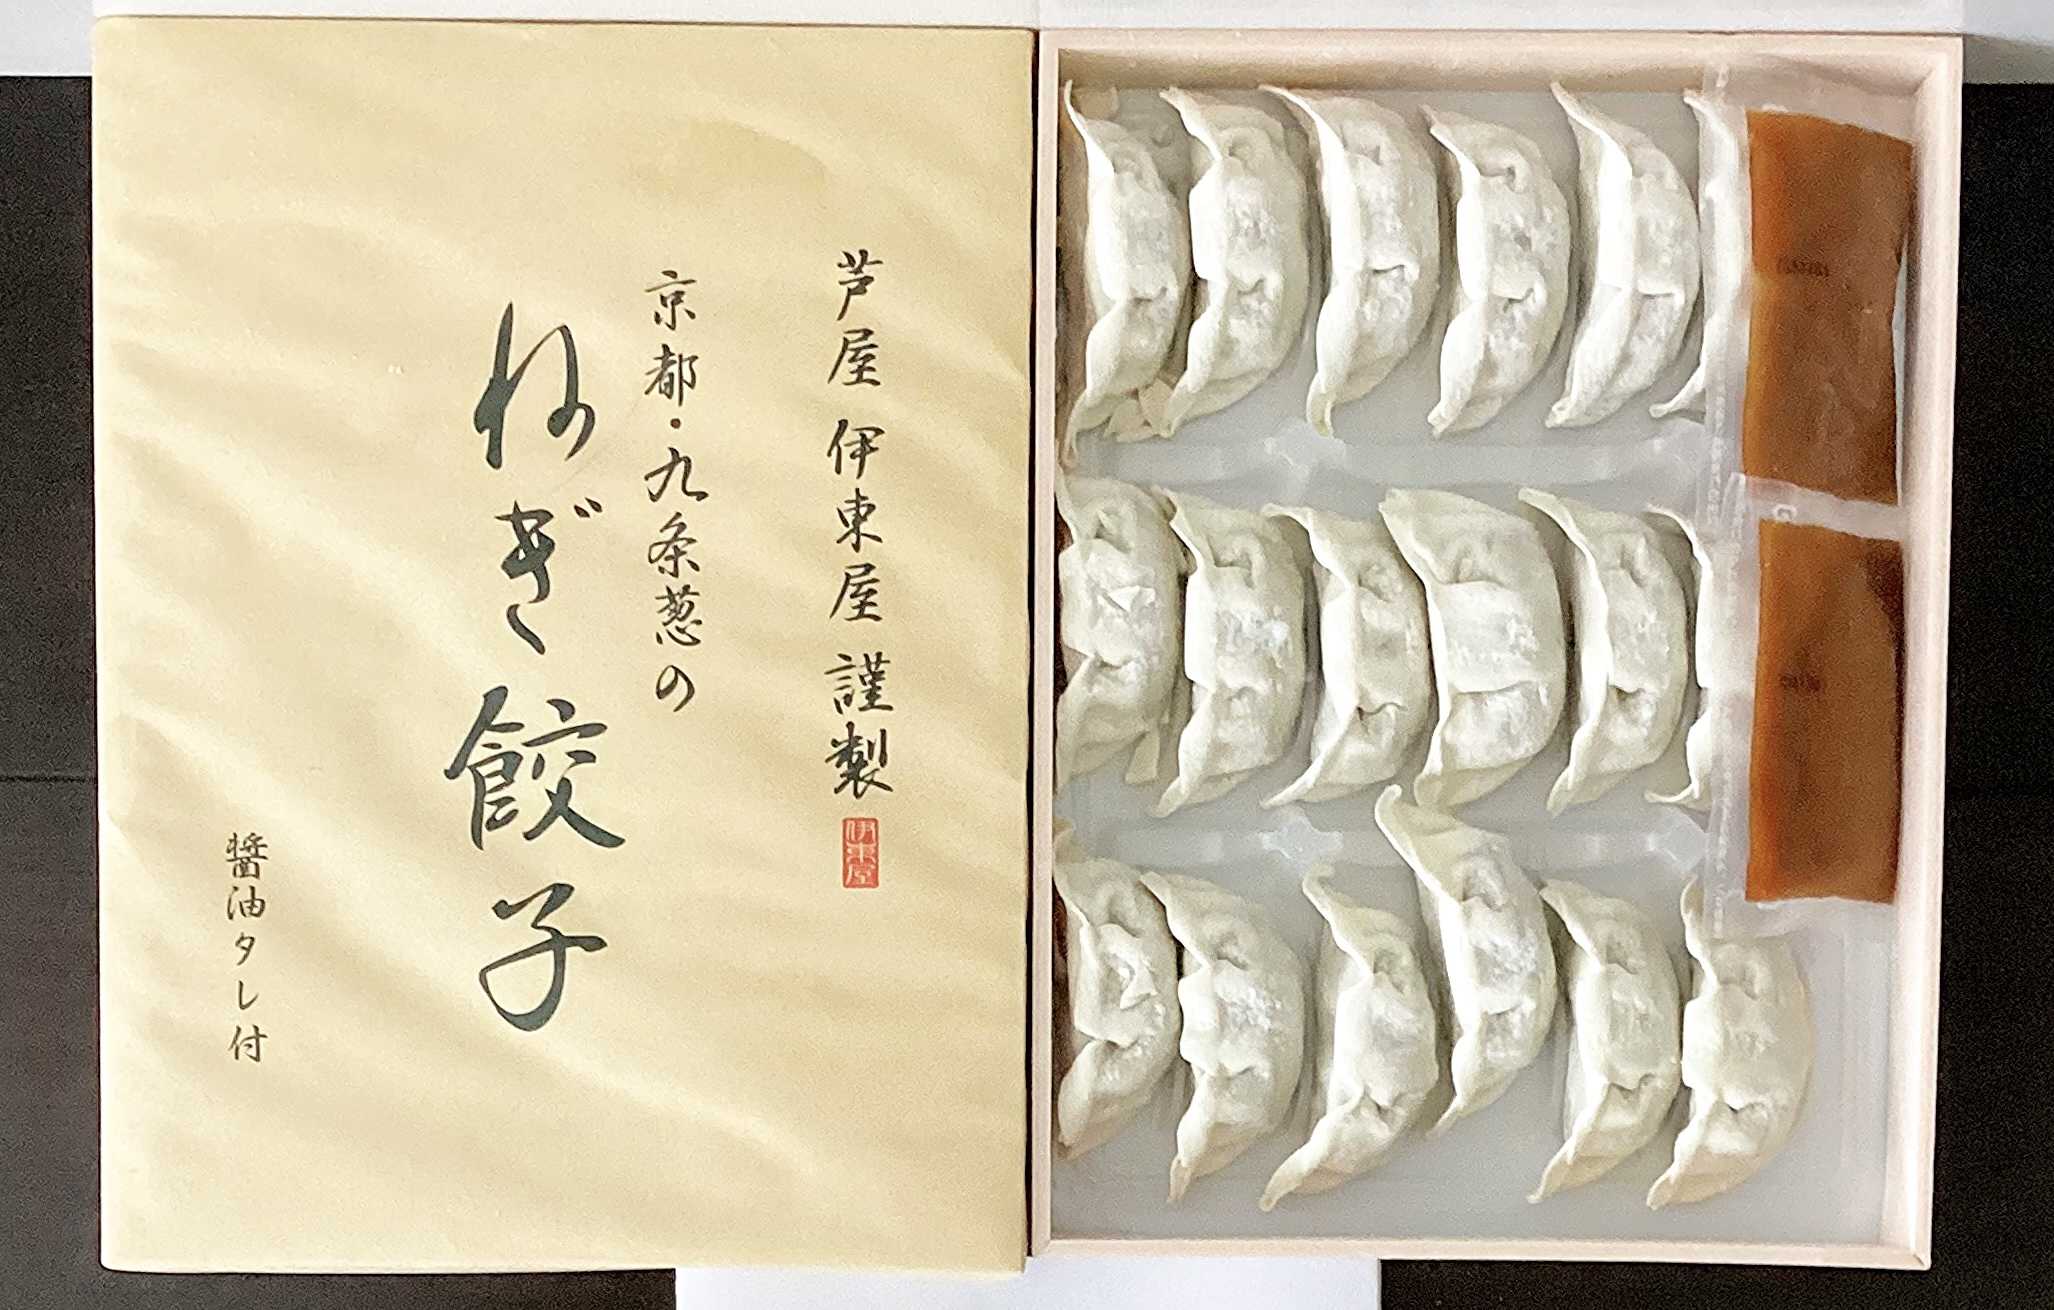 芦屋 伊東屋 謹製
伊東屋
京都・九条葱の
ねぎ餃子
醤油タレ付